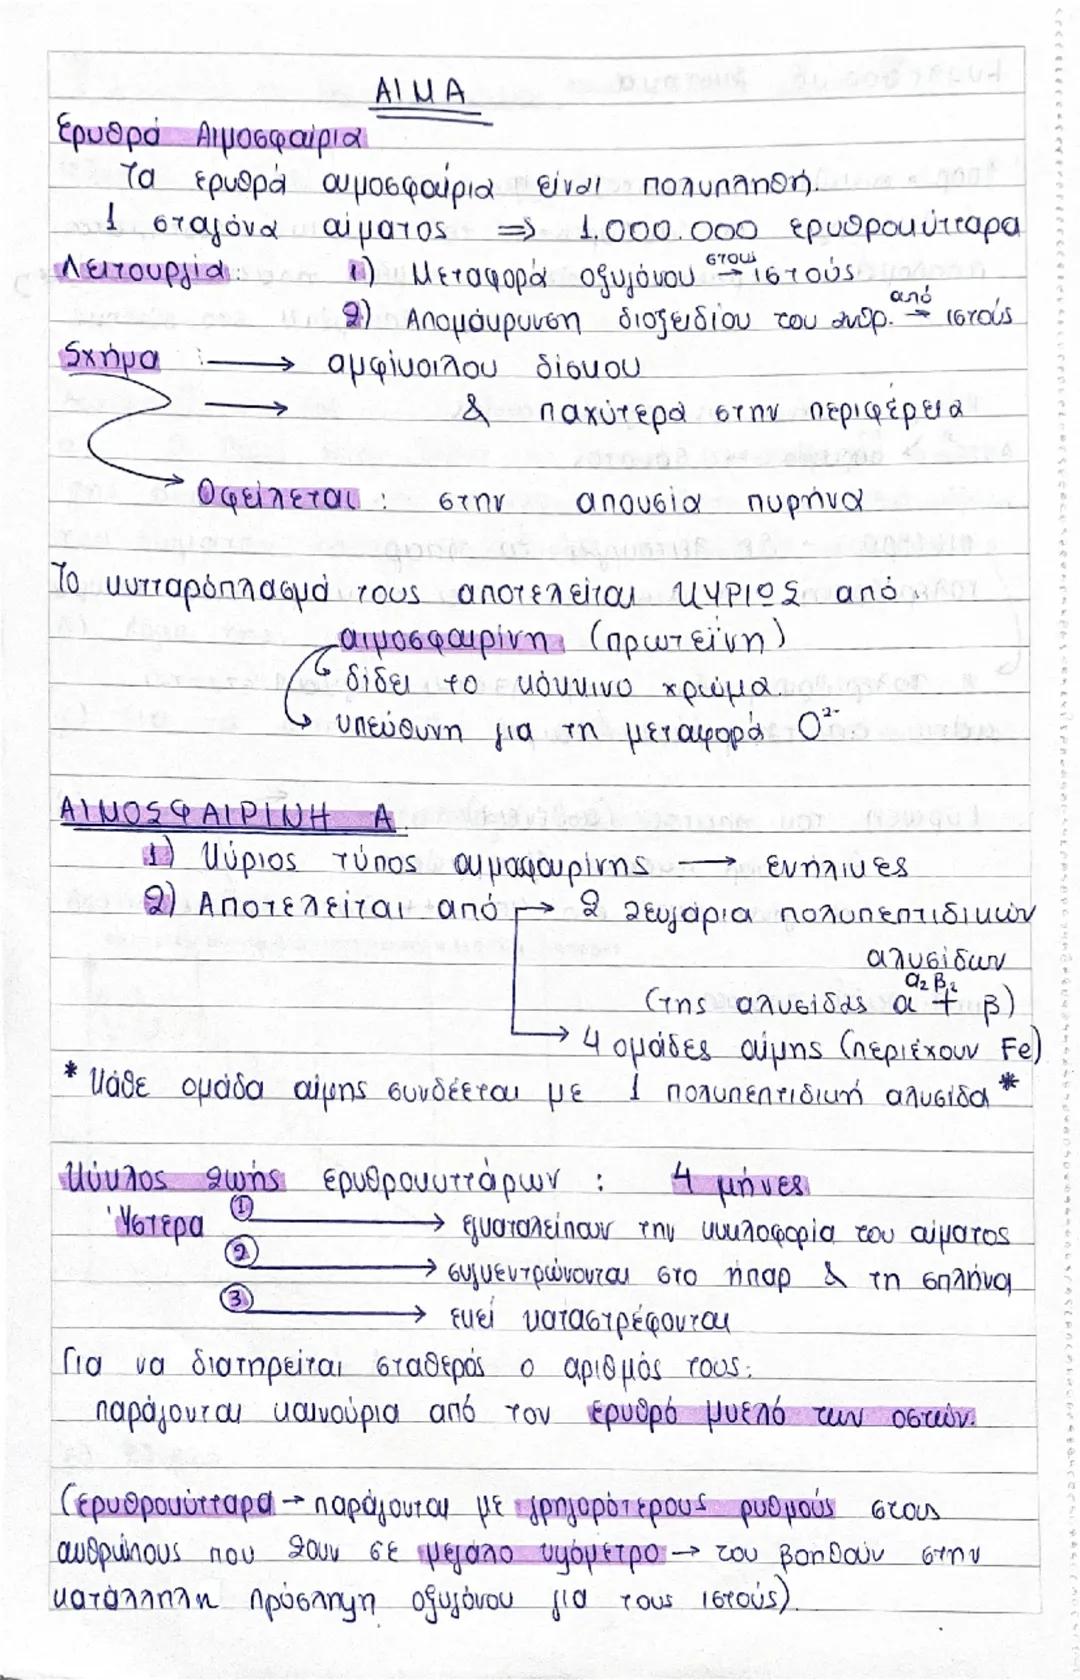 ΑΙΜΑ
Ερυθρά Αιμοσφαίρια
Τα ερυθρά αιμοσφαίρια είναι πολυπληθή.
1 σταγόνα αίματος => 1.000.000 ερυθροκύτταρα
Λειτουργία: 1) Μεταφορά οξυγόνου στους → ιστούς
2) Απομάκρυνση διοξειδίου του ανθρ. από → ιστούς
Σχήμα : → αμφίκοιλου δίσκου
→ & παχύτερα στην περιφέρεια
→ Οφείλεται : στην απουσία πυρήνα
Το κυτταρόπλασμά τους αποτελείται ΚΥΡΙΟΣ από
αιμοσφαιρίνη (πρωτεΐνη)
δίδει το κόκκινο χρώμα.
υπεύθυνη για τη μεταφορά O²⁻
ΑΙΜΟΣΦΑΙΡΙΝΗ Α.
1) Κύριος τύπος αιμαφαιρίνης → ενήλικες
2) Αποτελείται από → 2 ζευγάρια πολυπεπτιδικών
αλυσίδων
α₂ β₂
(της αλυσίδας α + β)
→ 4 ομάδες αίμης (περιέχουν Fe)
* Κάθε ομάδα αίμης συνδέεται με 1 πολυπεπτιδική αλυσίδα *
Κύκλος ζωής ερυθροκυττάρων : 4 μήνες
Ύστερα ① → εγκαταλείπουν την κυκλοφορία του αίματος
② → συγκεντρώνονται στο ήπαρ & τη σπλήνα
③ → εκεί καταστρέφονται
Για να διατηρείται σταθερός ο αριθμός τους:
παράγονται καινούρια από τον ερυθρό μυελό των οστών.
(ερυθροκύτταρα → παράγονται με γρηγορότερους ρυθμούς στους
ανθρώπους που ζουν σε μεγάλο υψόμετρο → του βοηθούν στην
κατάλληλη πρόσληψη οξυγόνου για τους ιστούς).